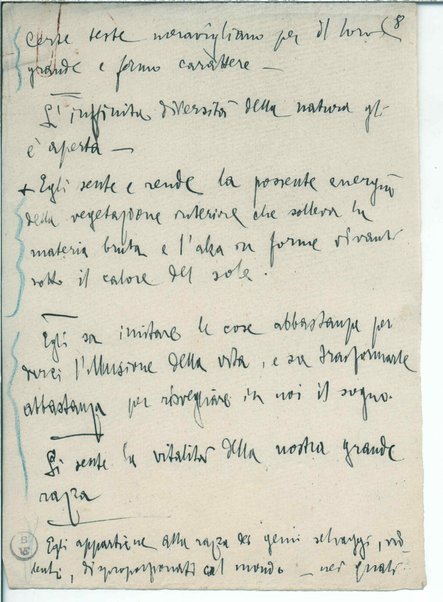 Certe teste meravigliano per il loro (8
grande e fermo carattere —
L'infinita diversità della natura gli
è aperta —
+ Egli sente e rende la possente energia
della vegetazione interiore che solleva la
materia bruta e l'alza in forme viventi
sotto il calore del sole.
Egli sa imitare le cose abbastanza per
darci l'illusione della vita, e sa trasformarle
abbastanza per risvegliare in noi il sogno.
Si sente la vitalità della nostra grande
razza
Egli appartiene alla razza dei geni selvaggi, vio-
lenti, disproporzionati col mondo — nei quali